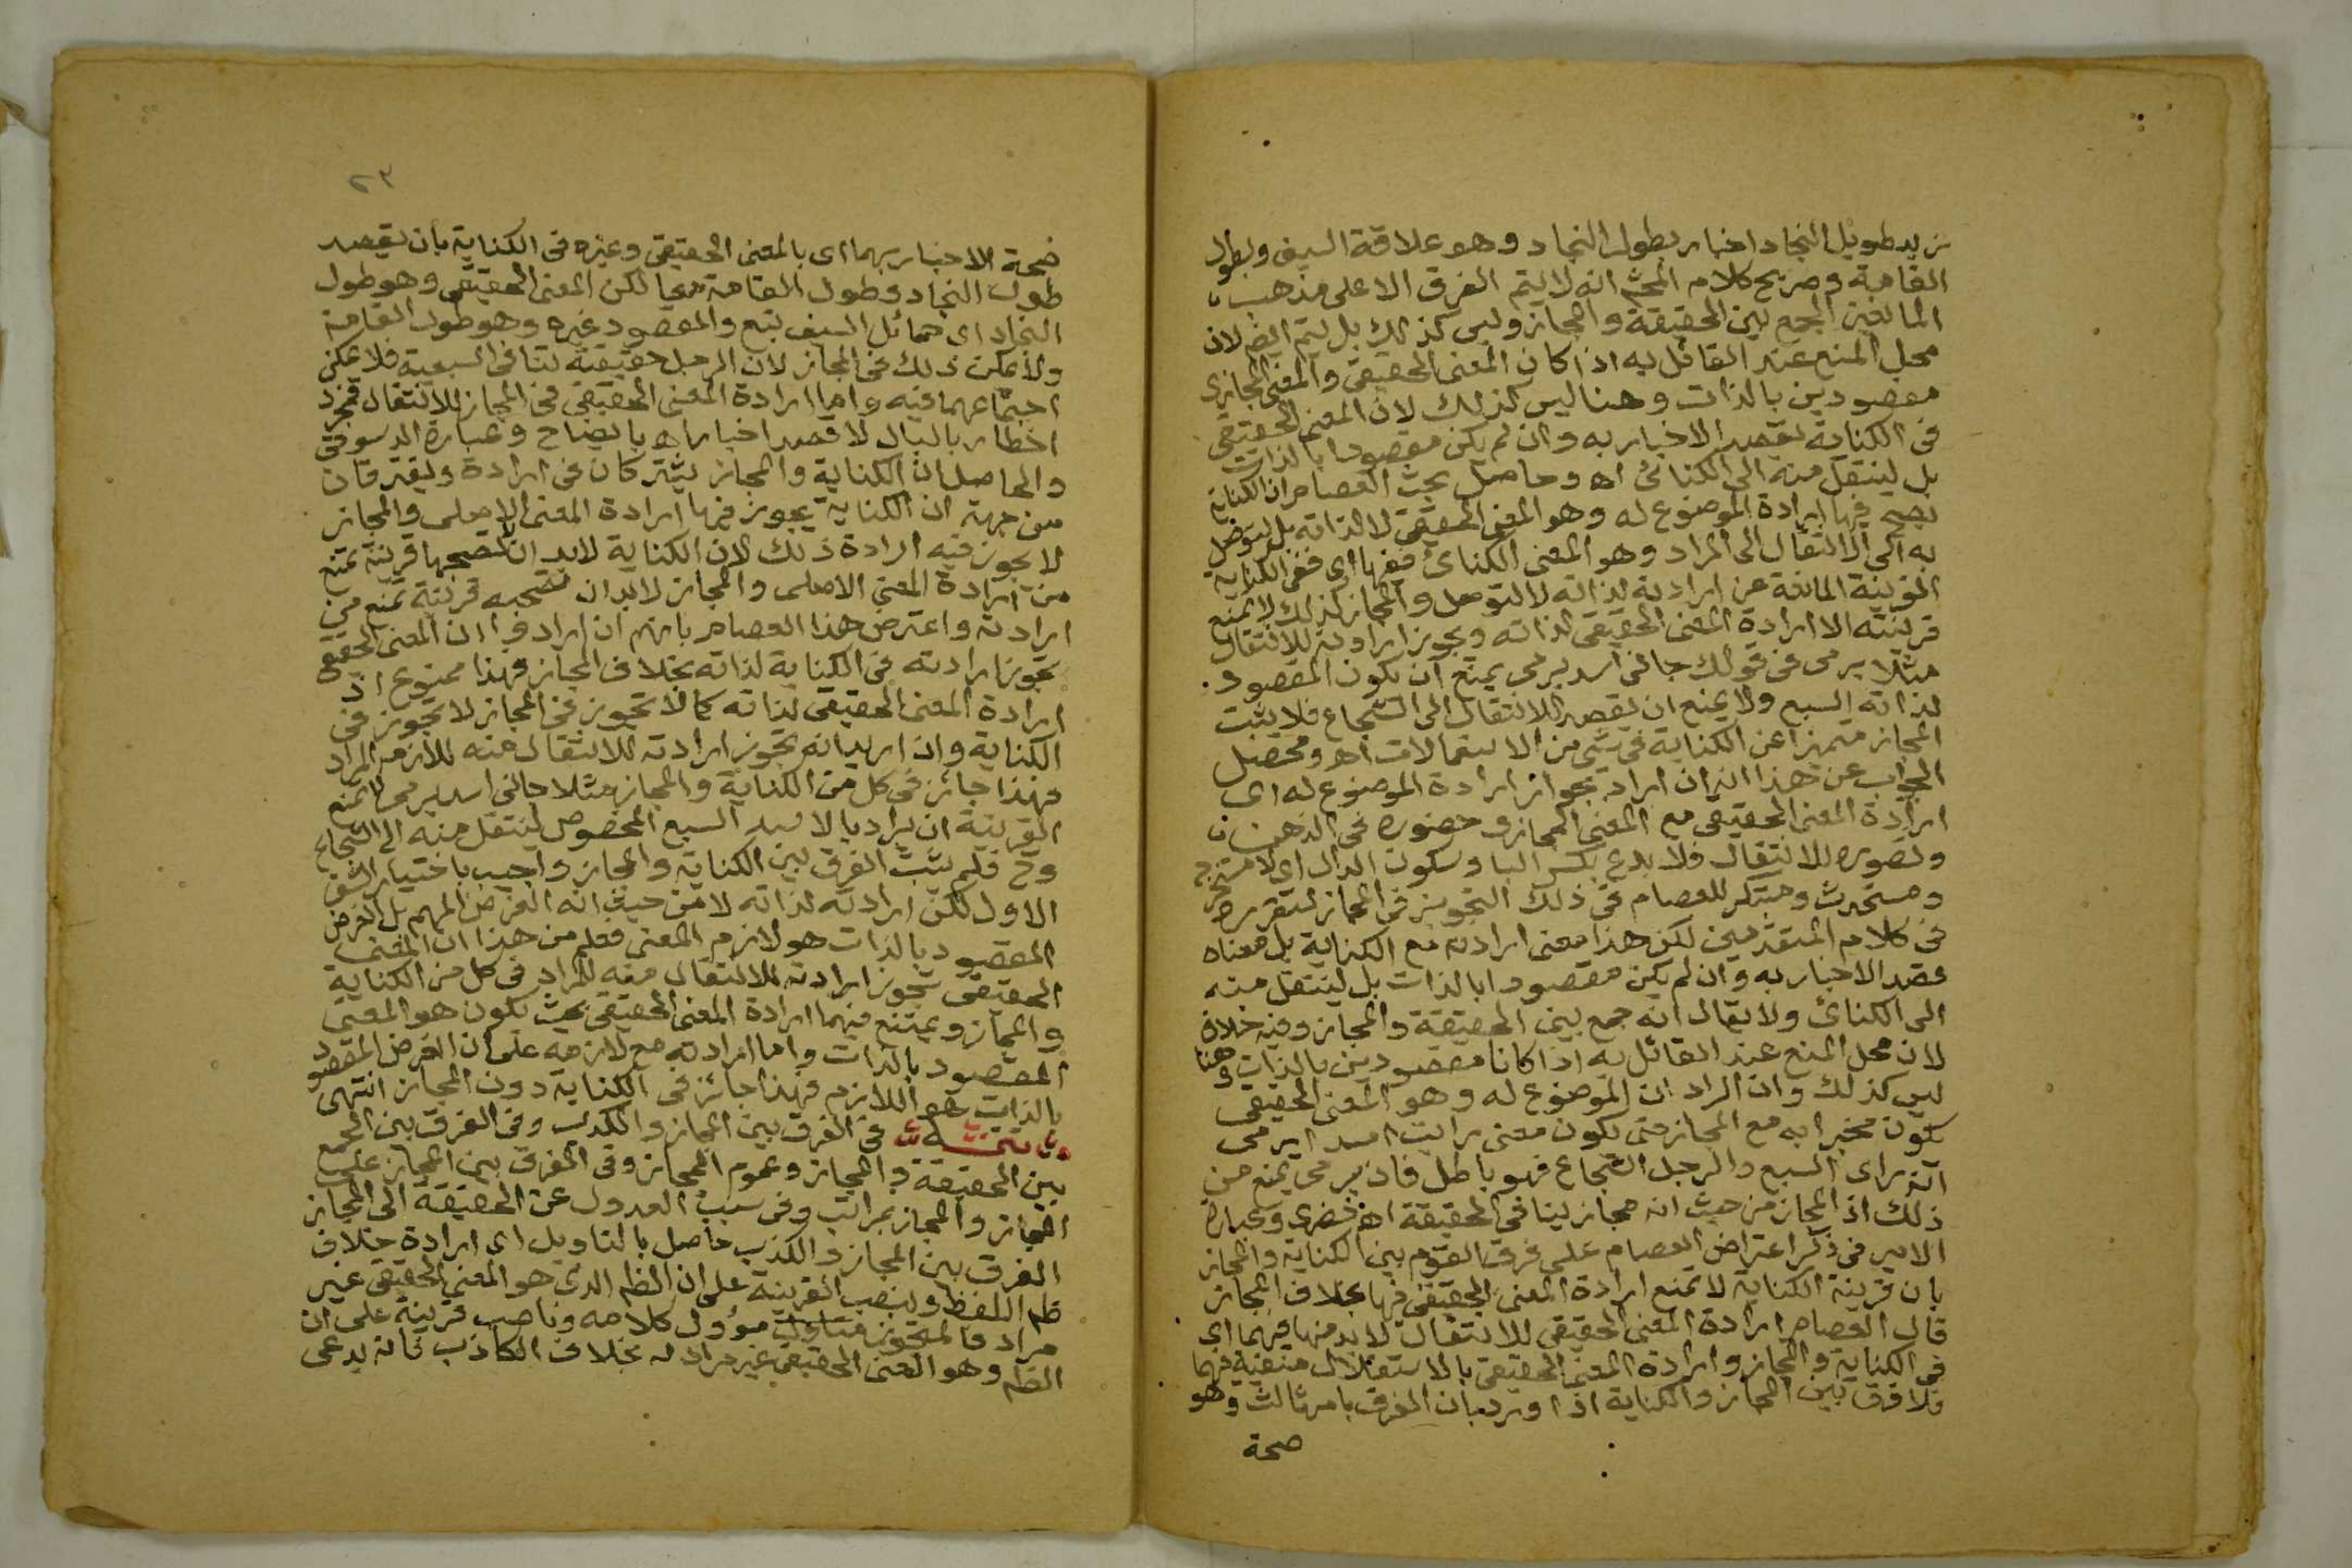 زيد طويل النجاد اخبار بطول النجاد وهو علاقة السيف وبطول
القامة وصريح كلام المحشي انه لا يتم الفرق الا على مذهب
المانعين الجمع بين الحقيقة والمجاز وليس كذلك بل يتم ايضا لان
محل المنع عند القائل به اذا كان المعنى الحقيقي والمعنى المجازي
مقصودين بالذات وهنا ليس كذلك لان المعنى الحقيقي
في الكناية يقصد الاخبار به وان لم يكن مقصودا بالذات
بل لينتقل منه الى الكنائي اه وحاصل بحث العصام ان الكناية
يصح فيها ارادة الموضوع له وهو المعنى الحقيقي لا لذاته بل ليتوصل
به الى الانتقال الى المراد وهو المعنى الكنائي ففيها اي ففي الكناية
القرينة المانعة عن ارادته لذاته لا للتوصل والمجاز كذلك لا يمنع
قرينته الا ارادة المعنى الحقيقي لذاته ويجوز ارادته للانتقال
مثلا يرمي في قولك جاني اسد يرمي يمنع ان يكون المقصود
لذاته السبع ولا يمنع ان يقصد للانتقال الى الشجاع فلا يثبت
المجاز متميزا عن الكناية في شي من الاستعمالات اه ومحصل
الجواب عن هذا انه ان اراد بجواز ارادة الموضوع له اي
ارادة المعنى الحقيقي مع المعنى المجازي حضوره في الذهن
وتصوره للانتقال فلا بدع بكسر الباء وسكون الدال اي لا مستخرج
ومستحدث ومبتكر للعصام في ذلك التجويز في المجاز لتقرره
في كلام المتقدمين لكن هذا معنى ارادته مع الكناية بل معناه
قصد الاخبار به وان لم يكن مقصودا بالذات بل لينتقل منه
الى الكنائي ولا يقال انه جمع بين الحقيقة والمجاز وفيه خلاف
لان محل المنع عند القائل به اذا كانا مقصودين بالذات وهنا
ليس كذلك وان اراد ان الموضوع له وهو المعنى الحقيقي
يكون مخبرا به مع المجاز حتى يكون معنى رايت اسدا يرمي
انه راى السبع والرجل الشجاع فهو باطل فاذ يرمي يمنع من
ذلك اذ المجاز من حيث انه مجاز ينافي الحقيقة اه خضري وعبارة
الامير في ذكر اعتراض العصام على فرق القوم بين الكناية والمجاز
بان قرينة الكناية لا تمنع ارادة المعنى الحقيقي فيها بخلاف المجاز
قال العصام ارادة المعنى الحقيقي للانتقال لا بد منها فيهما اي
في الكناية والمجاز وارادة المعنى الحقيقي بالاستقلال منفية فيهما
فلا فرق بين المجاز والكناية اذا ورد بان الفرق بامر ثالث وهو
صحة
٢٣
صحة الاخبار بهما اي بالمعنى الحقيقي وغيره في الكناية بان يقصد
طول النجاد وطول القامة معا لكن المعنى الحقيقي وهو طول
النجاد اي حمائل السيف تبع والمقصود غيره وهو طول القامة
ولا يمكن ذلك في المجاز لان الرجل حقيقة تنافي السبعية فلا يمكن
اجتماعهما فيه واما ارادة المعنى الحقيقي في المجاز للانتقال فمجرد
اخطار بالبال لا قصد اخبار اه بايضاح وعبارة الدسوقي
والحاصل ان الكناية والمجاز يشتركان في ارادة ويفترقان
من جهة ان الكناية يجوز فيها ارادة المعنى الاصلي والمجاز
لا يجوز فيه ارادة ذلك لان الكناية لا بد ان لا تصحبها قرينة تمنع
من ارادة المعنى الاصلي والمجاز لا بد ان تصحبه قرينة تمنع من
ارادته واعترض هذا العصام بانهم ان ارادوا ان المعنى الحقيقي
تجوز ارادته في الكناية لذاته بخلاف المجاز فهذا ممنوع اذ
ارادة المعنى الحقيقي لذاته كما لا تجوز في المجاز لا تجوز في
الكناية وان اريد انه تجوز ارادته للانتقال منه للازمه المراد
فهذا جائز في كل من الكناية والمجاز مثلا جاني اسد يرمي لا تمنع
القرينة ان يراد بالاسد السبع المخصوص لينتقل منه الى الشجاع
وح فلم يثبت الفرق بين الكناية والمجاز واجيب باختيار الشق
الاول لكن ارادته لذاته لا من حيث انه الغرض المهم بل الغرض
المقصود بالذات هو لازم المعنى فعلم من هذا ان المعنى
الحقيقي تجوز ارادته للانتقال منه للمراد في كل من الكناية
والمجاز ويمتنع فيهما ارادة المعنى الحقيقي بحيث يكون هو المعنى
المقصود بالذات واما ارادته مع لازمه على ان الغرض المقصود
بالذات هو اللازم فهذا جائز في الكناية دون المجاز انتهى
في الفرق بين المجاز والكذب وفي الفرق بين الجمع
بين الحقيقة والمجاز وعموم المجاز وفي الفرق بين المجاز على
المجاز والمجاز بمراتب وفي سبب العدول عن الحقيقة الى المجاز
الفرق بين المجاز والكذب حاصل بالتاويل اي ارادة خلاف
ظم اللفظ وبنصب القرينة على ان الظم الذي هو المعنى الحقيقي غير
مراد فالمتجوز متاول مؤول كلامه وناصب قرينة على ان
الظم وهو المعنى الحقيقي غير مراد له بخلاف الكاذب فانه يدعي